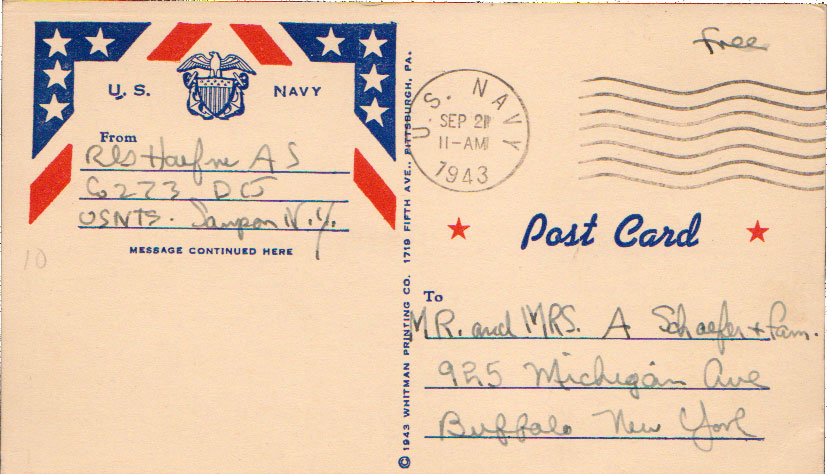 Free
U.S. NAVY
From
A S
C 273 D U
USNTS. Sampson N.Y.
MESSAGE CONTINUED HERE
10
© 1943 WHITMAN PRINTING CO. 1719 FIFTH AVE., PITTSBURGH, PA.
U.S. NAVY
SEP 21
11-AM
1943
Post Card
To
MR. and MRS. A Schaefer + Fam.
925 Michigan Ave
Buffalo New York